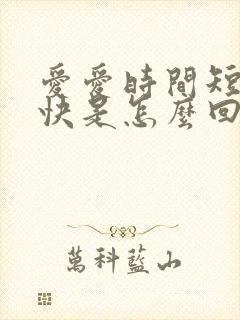 愛愛時間短
快是怎麼回
萬科藍山